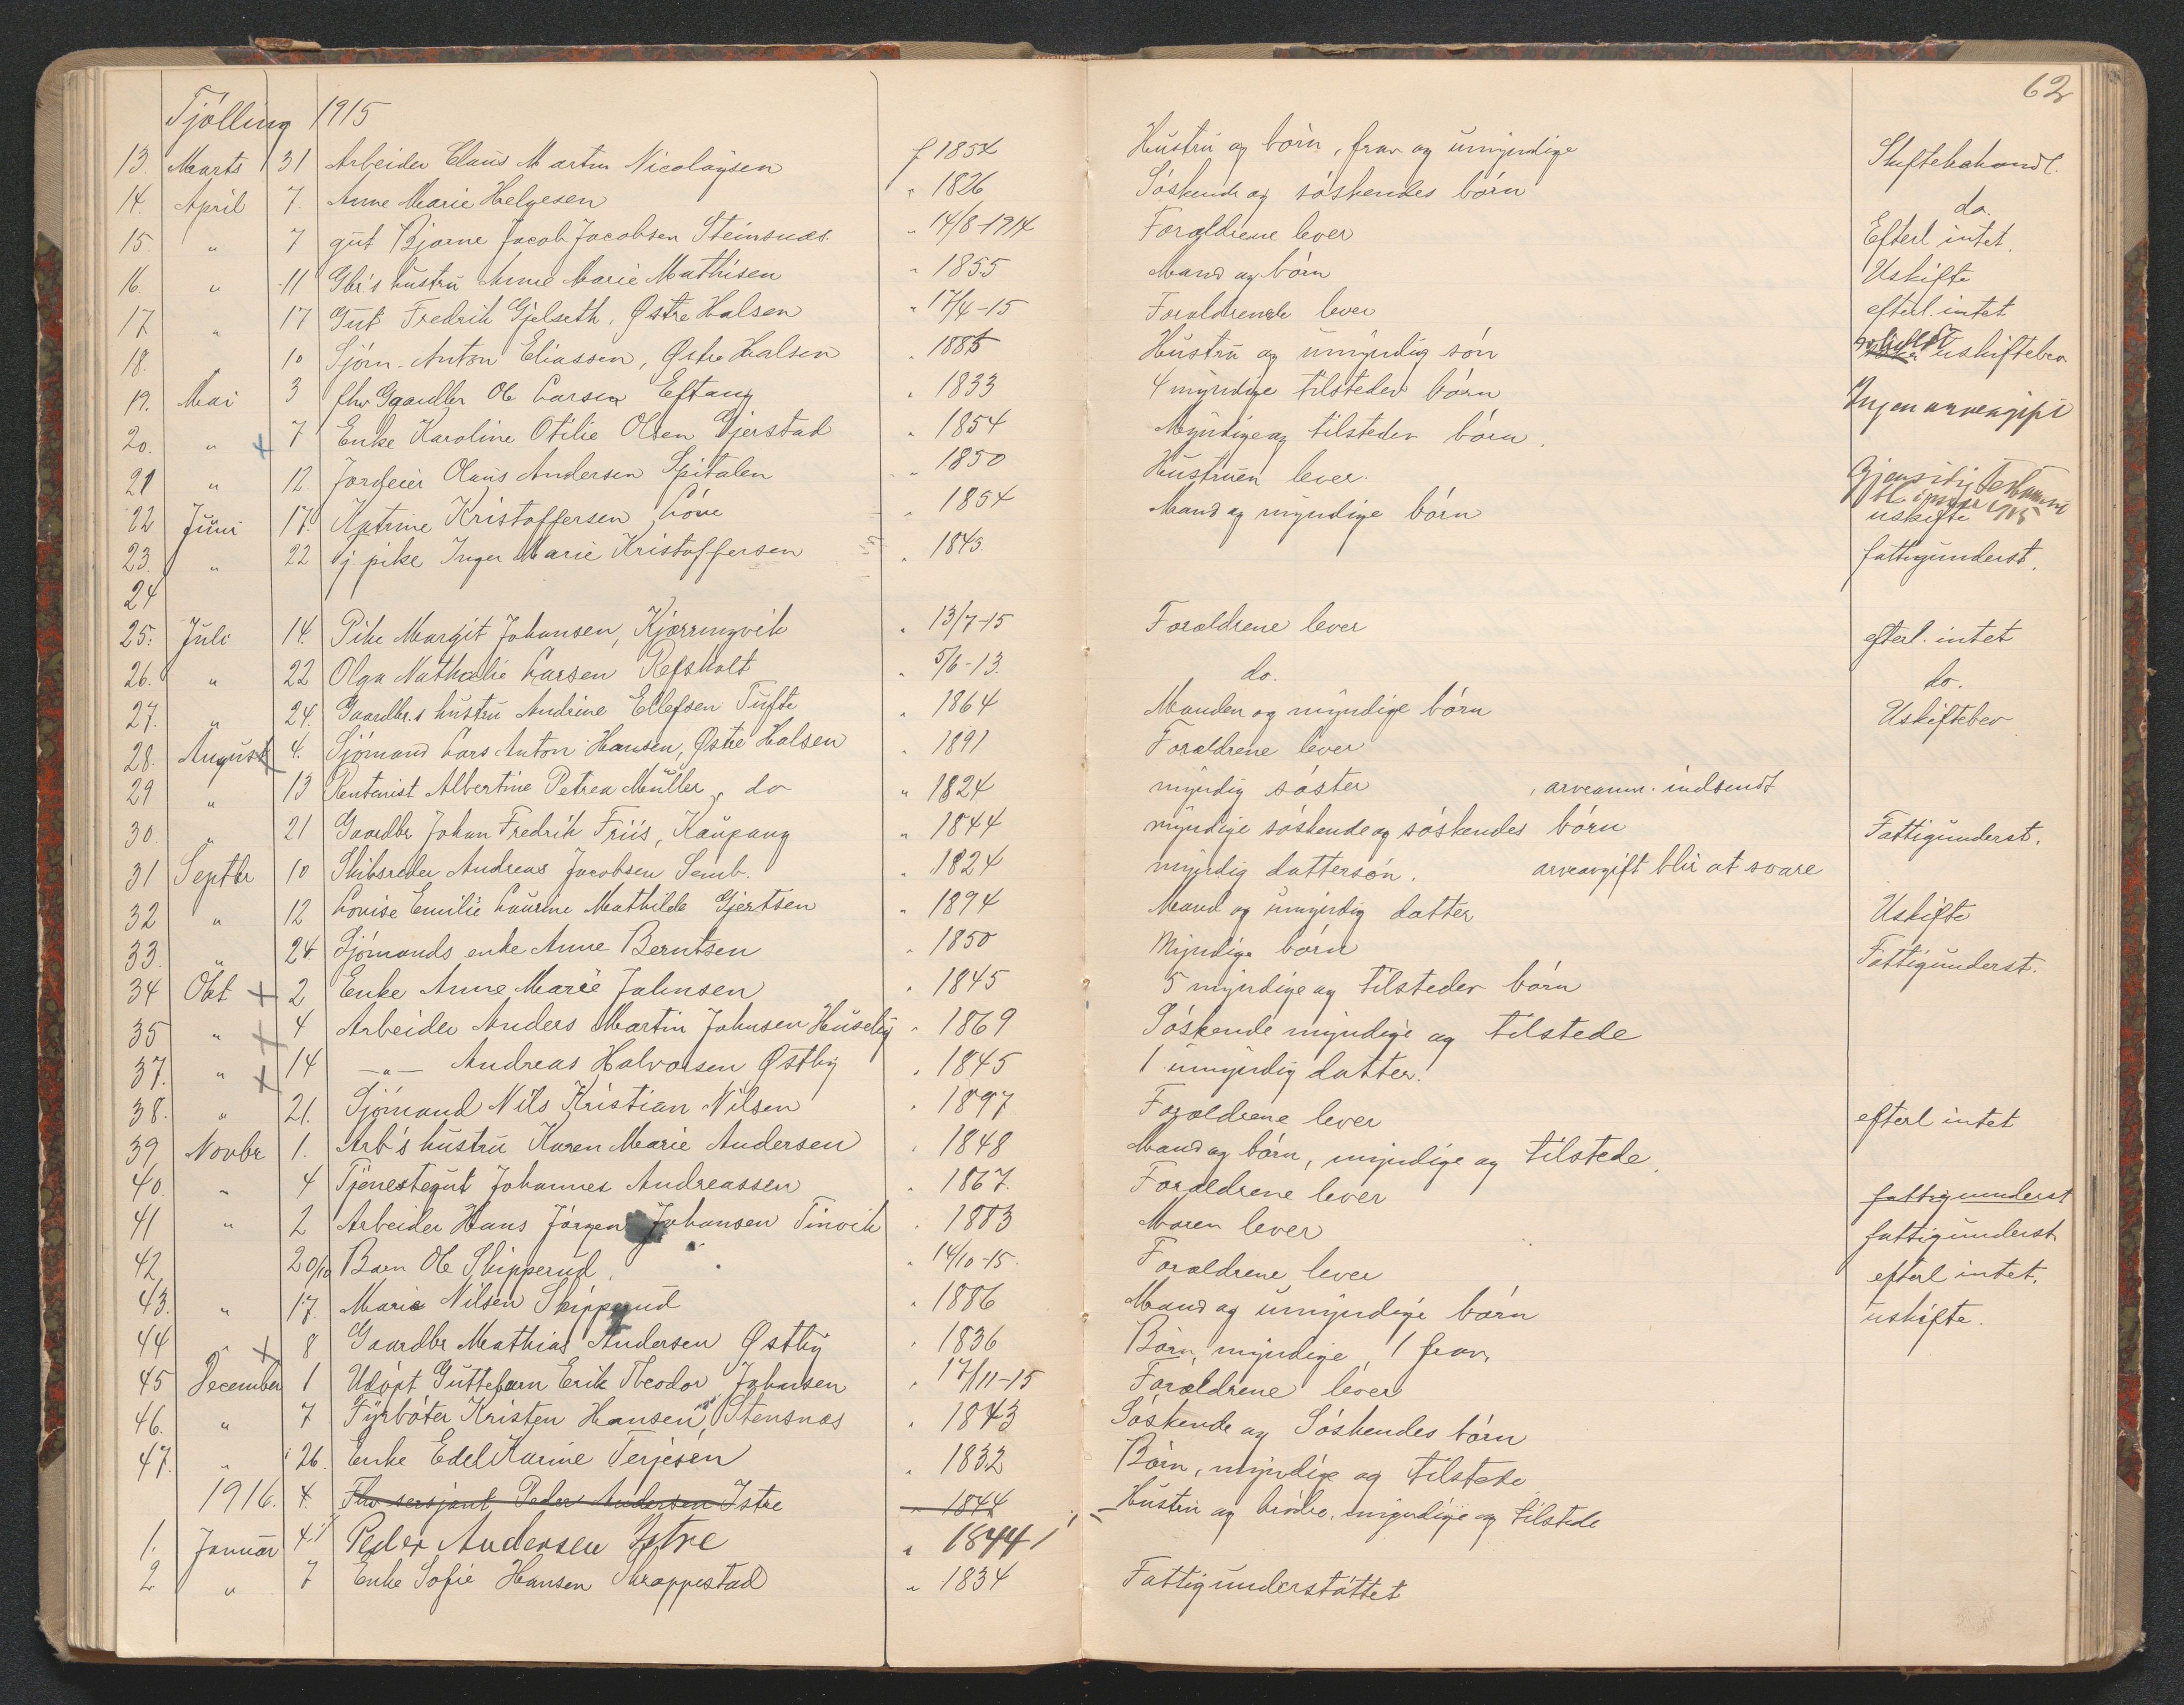 62
Tjølling 1915
13. Marts 31 Arbeider Claus Martin Nicolaysen f 1854 Hustru og börn, frav og umyndige Skiftebehandl.
14. April 7. Anne Marie Helgesen " 1826 Söskende og söskendes börn do.
15. " 7 gut Bjarne Jacob Jacobsen Steinsnæs. " 14/8-1914 Forældrene lever Efterl intet.
16. " 11 Gbr's hustru Anne Marie Mathisen " 1855 Mand og börn Uskifte
17 " 17 Gut Fredrik Gjelseth, Østre Halsen " 17/4-15 Forældrene lever efterl. intet
18. " 10 Sjöm. Anton Eliassen, Østre Halsen " 1885 Hustru og umyndig sön uskiftebev
19. Mai 3 fhv Gaardbr Ole Larsen Eftang " 1833 4 myndige tilstedev börn Ingen arveavgift
20. " + 7 Enke Karoline Otilie Olsen Gjerstad " 1854 Myndige og tilstedev börn.
21 " 12. Jordeier Olaus Andersen Spitalen " 1850 Hustruen lever. Gjensidig Testament
22 Juni 17. Katrine Kristoffersen Löve " 1854 Mand og myndige börn uskifte
23. " 22 j pike Inger Marie Kristoffersen " 1843. fattigunderst.
24
25. Juli 14. Pike Margit Johansen, Kjærringvik " 13/7-15 Forældrene lever efterl. intet
26. " 22 Olga Nathalie Larsen Refsholt " 5/6-13. do. do.
27. " 24. Gaardbr.s hustru Andrine Ellefsen Tufte " 1864 Manden og myndige börn Uskiftebev
28. August + 4. Sjömand Lars Anton Hansen, Østre Halsen " 1891 Forældrene lever
29 " 13 Rentenist Albertine Petrea Müller, do " 1824 myndig söster, arveanm. indsendt
30. " 21 Gaardbr Johan Fredrik Friis, Kaupang " 1844 myndige söskende og söskendes börn Fattigunderst.
31 Septbr 10 Skibsreder Andreas Jacobsen Semb. " 1824 myndig dattersön. arveavgift blir at svare
32 " 12 Lovise Emilie Laurine Mathilde Gjertsen " 1894 Mand og umyndig datter Uskifte
33. " 24. Sjömands enke Anne Berntsen " 1850 Myndige börn Fattigunderst.
34 Okt + 2 Enke Anne Marie Johnsen " 1845 5 myndige og tilstedev börn
35 " + 4 Arbeider Anders Martin Johnsen Huseby " 1869 Söskende myndige og tilstede
37. " + 14 —"— Andreas Halvorsen Østby " 1845 1 umyndig datter.
38. " 21. Sjömand Nils Kristian Nilsen " 1897 Forældrene lever efterl intet
39 Novbr 1. Arb's hustru Karen Marie Andersen " 1848 Mand og börn, myndige og tilstede.
40. " 4 Tjenestegut Johannes Andreassen " 1867. Forældrene lever fattigunderst
41 " 2 Arbeider Hans Jörgen Johansen Tinvik " 1883 Moren lever fattigunderst
42. 20/10 Barn Ole Skipperud. " 14/10-15. Forældrene lever efterl intet.
43. " 17. Marie Nilsen Skipperud " 1886 Mand og umyndige börn uskifte.
44 " + 8 Gaardbr Mathias Andersen Østby " 1836 Börn, myndige, 1 frav.
45 December 1 Udöpt Guttebarn Erik Theodor Johnsen " 17/11-15 Forældrene lever
46. " 7 Fyrböter Kristen Hansen, Stensnæs " 1843 Söskende og Söskendes börn
47. " 26. Enke Edel Karine Terjesen " 1832 Börn, myndige og tilstede
1916. 4. Fhv sersjant Peder Andersen Istre " 1844 Hustru og brödre, myndige og tilstede
1. Januar 4. Peder Andersen Istre " 1844
2 " 7 Enke Sofie Hansen Skrappestad " 1834 Fattigunderstöttet